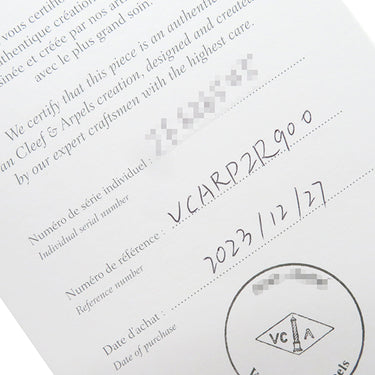 vous certifions
authentique création
sinée et créée par nos art
avec le plus grand soin.
We certify that this piece is an authentic
an Cleef & Arpels creation, designed and created
by our expert craftsmen with the highest care.
Numéro de série individuel :
Individual serial number
Numéro de référence : VCARP2R900
Reference number
Date d'achat : 2023/12/27
Date of purchase
VC A
els